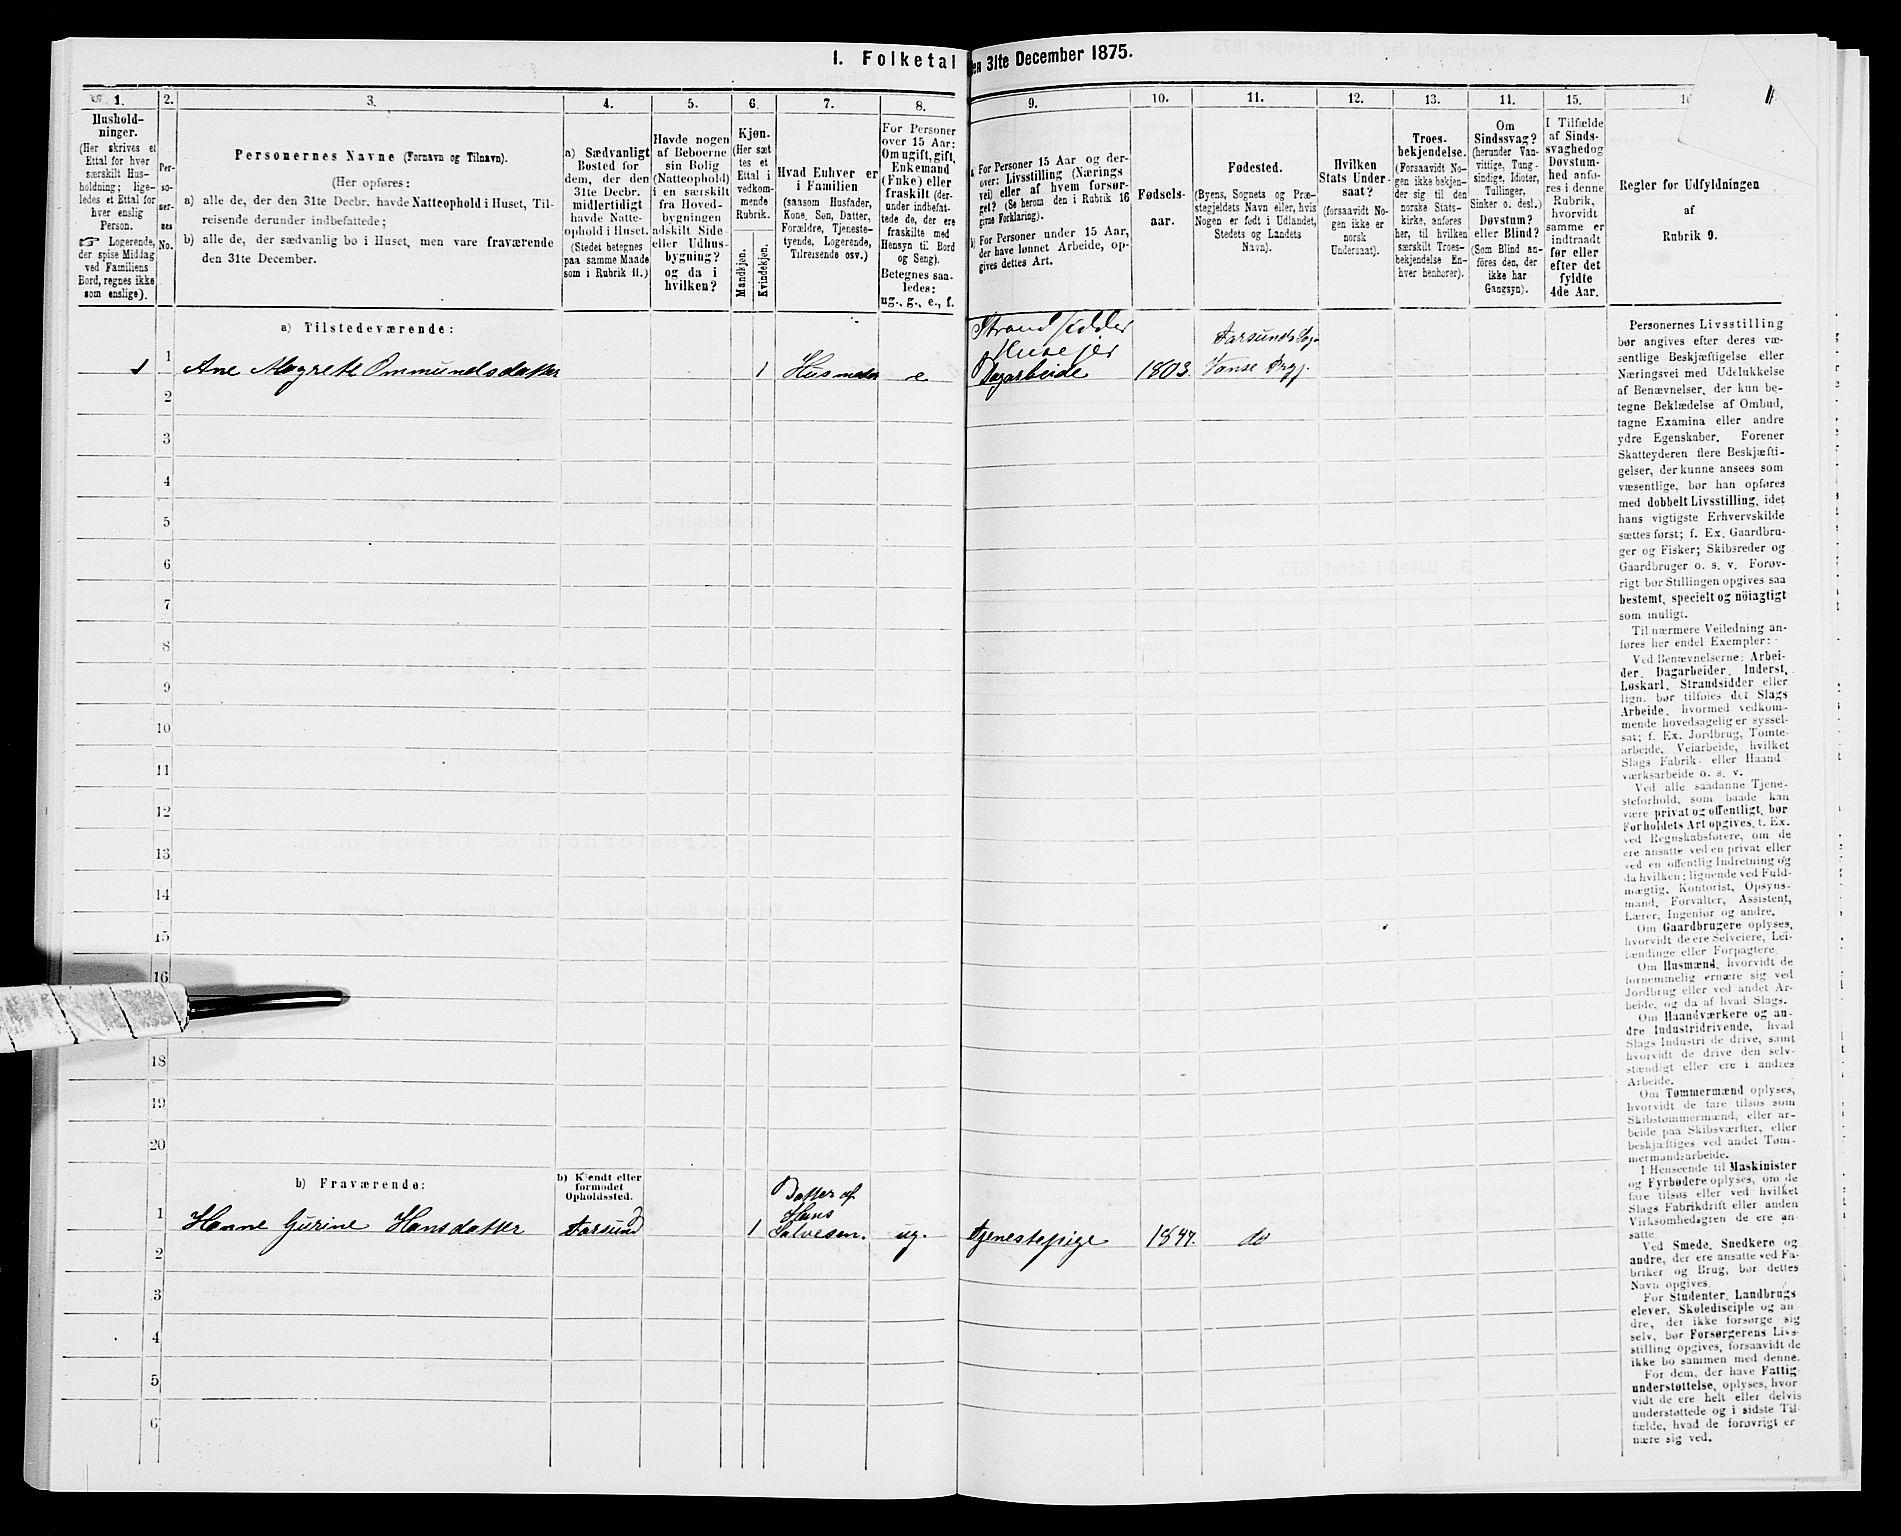 I. Folketal
den 31te December 1875.
1.
Hushold-
ninger.
(Her skrives et
Ettal for hver
særskilt Hus-
holdning; lige-
ledes et Ettal for
hver enslig
Person.
☞ Logerende,
der spise Middag
ved Familiens
Bord, regnes ikke
som enslige).
2.
Per-
so-
ner-
nes
No.
3.
Personernes Navne (Fornavn og Tilnavn).
(Her opføres:
a) alle de, der den 31te Decbr. havde Natteophold i Huset, Til-
reisende derunder indbefattede;
b) alle de, der sædvanlig bo i Huset, men vare fraværende
den 31te December.
4.
a) Sædvanligt
Bosted for
dem, der den
31te Decbr.
midlertidigt
havde Natte-
ophold i Huset.
(Stedet betegnes
paa samme Maade
som i Rubrik 11.)
5.
Havde nogen
af Beboerne
sin Bolig
(Natteophold)
i en særskilt
fra Hoved-
bygningen
adskilt Side-
eller Udhus-
bygning?
og da i
hvilken?
6.
Kjøn.
(Her sæt-
tes et
Ettal i
vedkom-
mende
Rubrik.
Mandkjøn.
Kvindekjøn.
7.
Hvad Enhver er
i Familien
(saasom Husfader,
Kone, Søn, Datter,
Forældre, Tjeneste-
tyende, Logerende,
Tilreisende osv.)
8.
For Personer
over 15 Aar:
Om ugift, gift,
Enkemand
(Enke) eller
fraskilt (der-
under indbefat-
tede de, der ere
fraskilte med
Hensyn til Bord
og Seng).
Betegnes saa-
ledes:
ug., g., e., f.
9.
a) For Personer 15 Aar og der-
over: Livsstilling (Nærings
vei) eller af hvem forsør-
get? (Se herom den i Rubrik 16
givne Forklaring).
b) For Personer under 15 Aar,
der have lønnet Arbeide, op-
gives dettes Art.
10.
Fødsels-
aar.
11.
Fødested.
(Byens, Sognets og Præ-
stegjeldets Navn eller, hvis
Nogen er født i Udlandet,
Stedets og Landets
Navn).
12.
Hvilken
Stats Under-
saat?
(forsaavidt No-
gen ikke er
norsk
Undersaat).
13.
Troes-
bekjendelse.
(Forsaavidt No-
gen ikke bekjen-
der sig til den
norske Stats-
kirke, anføres
her, til hvilken
særskilt Troes-
bekjendelse En-
hver henhører).
14.
Om
Sindssvag?
(herunder Van-
vittige, Tung-
sindige, Idioter,
Tullinger,
Sinker o. desl.)
Døvstum?
eller Blind?
(Som Blind an-
føres den, der
ikke har
Gangsyn).
15.
I Tilfælde
af Sinds-
svaghed og
Døvstum-
hed anfø-
res i denne
Rubrik,
hvorvidt
samme er
indtraadt
før eller
efter det
fyldte
4de Aar.
Regler for Udfyldningen
af
Rubrik 9.
a) Tilstedeværende:
Strandsidder
Huseier
Farsunds Sogn
1 1 Ane Magrete Ommundsdatter 1 Husmoder e Dagarbeide 1803. Vanse Prgj.
2
3
4
5
6
7
8
9
10
11
12
13
14
15
16
18
19
20
b) Fraværende:
b) Kjendt eller
formodet
Opholdssted.
Datter af
Hans
1 Hanne Gurine Hansdatter Farsund 1 Salvesen. ug. Tjenestepige 1847. do
2
3
4
5
6
Personernes Livsstilling
bør angives efter deres væ-
sentlige Beskjæftigelse eller
Næringsvei med Udelukkelse
af Benævnelser, der kun be-
tegne Beklædelse af Ombud,
tagne Examina eller andre
ydre Egenskaber. Forener
Skatteyderen flere Beskjæfti-
gelser, der kunne ansees som
væsentlige, bør han opføres
med dobbelt Livsstilling, idet
hans vigtigste Erhvervskilde
sættes først; f. Ex. Gaardbru-
ger og Fisker; Skibsreder og
Gaardbruger o. s. v. Forøv-
rigt bør Stillingen opgives saa
bestemt, specielt og nöiagtigt
som muligt.
Til nærmere Veiledning an-
føres her endel Exempler:
Ved Benævnelserne: Arbei-
der, Dagarbeider, Inderst,
Løskarl, Strandsidder eller
lign. bør tilføies det Slags
Arbeide, hvormed vedkom-
mende hovedsagelig er syssel-
sat; f. Ex. Jordbrug, Tomte-
arbeide, Veiarbeide, hvilket
Slags Fabrik- eller Haand-
værksarbeide o. s. v.
Ved alle saadanne Tjene-
steforhold, som baade kan
være privat og offentligt, bør
Forholdets Art opgives, t. Ex.
ved Regnskabsførere, om de
ere ansatte ved en privat eller
ved en offentlig Indretning og
da hvilken; lignende ved Fuld-
mægtig, Kontorist, Opsyns-
mand, Forvalter, Assistent,
Lærer, Ingeniør og andre.
Om Gaardbrugere oplyses,
hvorvidt de ere Selveiere, Lei-
lændinge eller Forpagtere.
Om Husmænd, hvorvidt de
fornemmelig ernære sig ved
Jordbrug eller ved andet Ar-
beide, og da af hvad Slags.
Om Haandværkere og an-
dre Industridrivende, hvad
Slags Industri de drive, samt
hvorvidt de drive den selv-
stændigt eller ere i andres
Arbeide.
Om Tømmermænd oplyses,
hvorvidt de fare tilsøs som
Skibstømmermænd, eller ar-
beide paa Skibsværfter, eller
beskjæftiges ved andet Tøm-
mermandsarbeide.
I Henseende til Maskinister
og Fyrbødere oplyses, om de
fare tilsøs eller ved hvilket
Slags Fabrikdrift eller anden
Virksomhed gren de ere an-
satte.
Ved Smede, Snedkere og
andre, der ere ansatte ved Fa-
briker og Brug, bør dettes
Navn opgives.
For Studenter, Landbrugs
elever, Skoledisciple og an-
dre, der ikke forsørge sig
selv, bør Forsørgerens Livs-
stilling opgives, forsaavidt de
ikke bo sammen med denne.
For dem, der have Fattig-
understøttelse, oplyses, hvor
vidt de ere helt eller delvis
understøttede og i sidste Til-
fælde, hvad de forøvrigt er
nære sig ved.